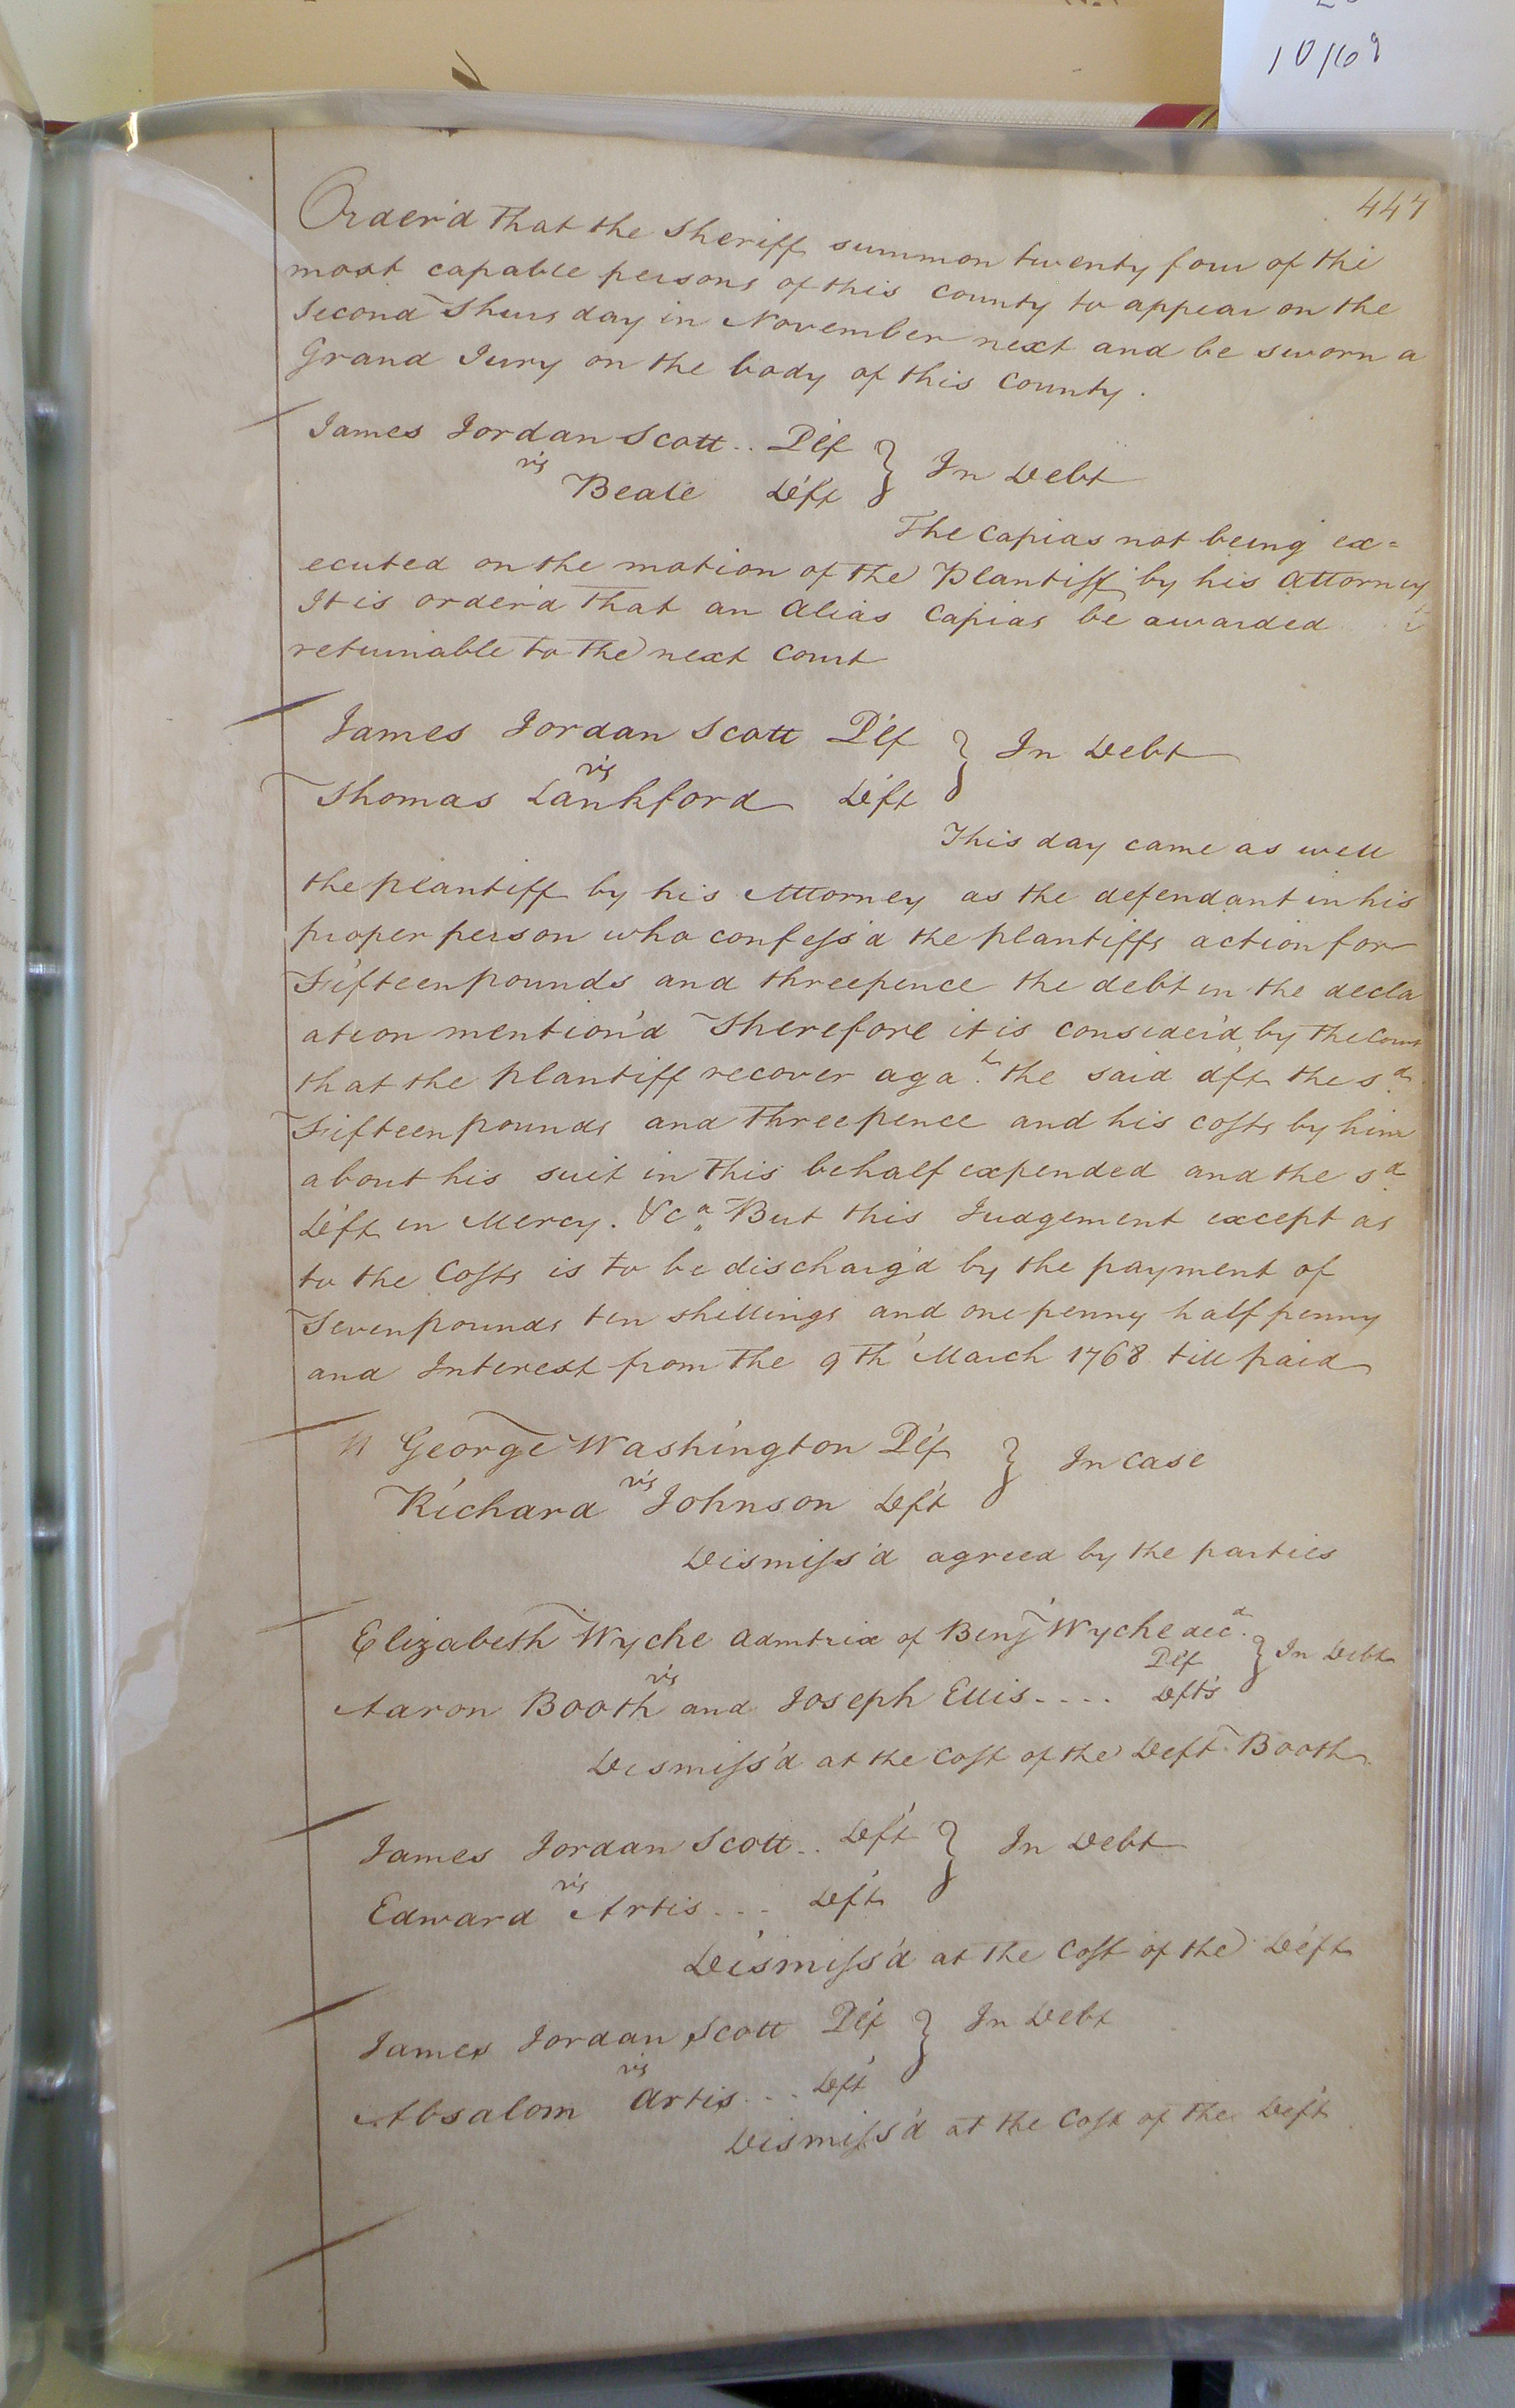 10/69
447
Order'd that the Sheriff summon twenty four of the
most capable persons of this County to appear on the
Second Thursday in November next and be sworn a
Grand Jury on the body of this County.
James Jordan Scott .. Plf } In Debt
vs
Beale Deft
The Capias not being ex=
ecuted on the motion of the Plantiff by his Attorney
It is order'd that an Alias Capias be awarded
returnable to the next Court
James Jordan Scott Plf } In Debt
vs
Thomas Lankford Deft
This day came as well
the plantiff by his Attorney as the defendant in his
proper person who confess'd the plantiffs action for
Fifteen pounds and threepence the debt in the decla
ation mention'd Therefore it is consider'd by the Court
that the plantiff recover aga.t the said dft the s.d
Fifteen pounds and threepence and his costs by him
about his suit in this behalf expended and the s.d
Deft in Mercy. &c.a But this Judgement except as
to the Costs is to be discharg'd by the payment of
Seven pounds ten shillings and one penny half penny
and Interest from the 9th March 1768 till paid
George Washington Plf } In Case
vs
Richard Johnson Deft
Dismiss'd agreed by the parties
Elizabeth Wyche admtrix of Benj Wyche dec.d
Plf } In Debt
vs
Aaron Booth and Joseph Ellis .... Defts
Dismiss'd at the Cost of the Deft Booth
James Jordan Scott .. Deft } In Debt
vs
Edward Artis ... Deft
Dismiss'd at the Cost of the Deft
James Jordan Scott Plf } In Debt
vs
Absalom Artis ... Deft
Dismiss'd at the Cost of the Deft